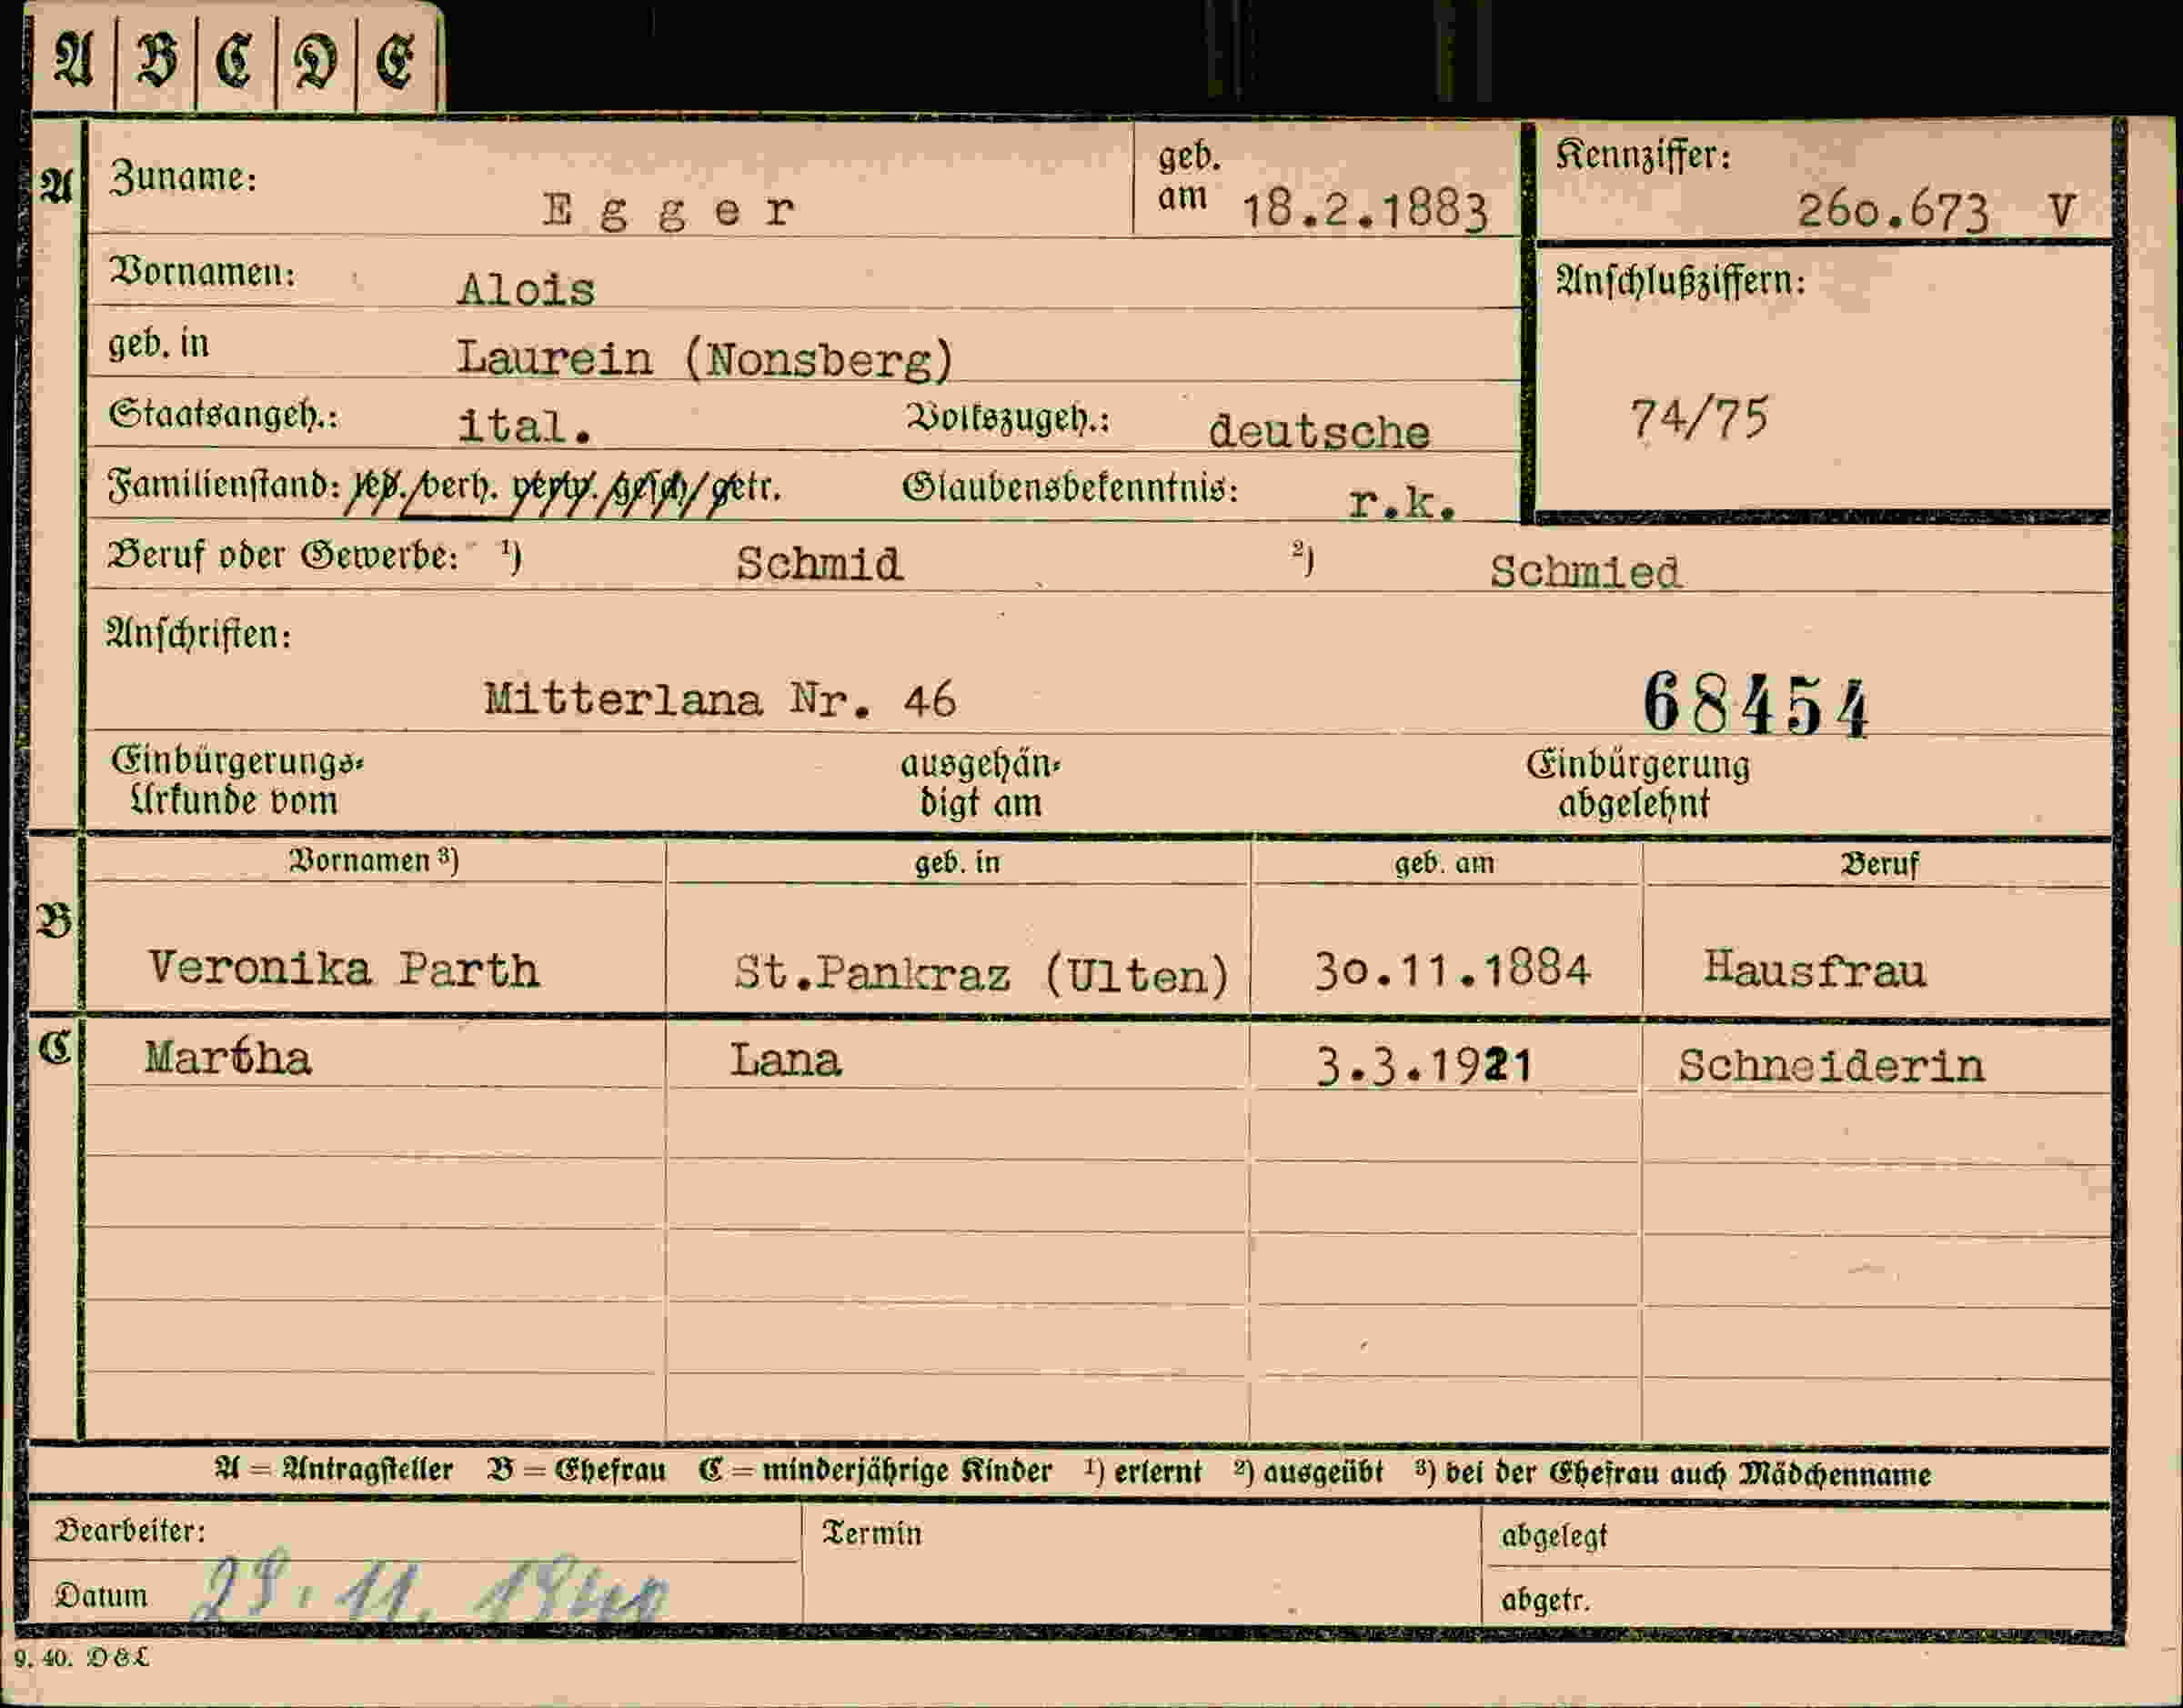 A B C D E
A Zuname: Egger geb. am 18.2.1883 Kennziffer: 260.673 V
Vornamen: Alois Anschlußziffern:
geb. in Laurein (Nonsberg)
Staatsangeh.: ital. Volkszugeh.: deutsche 74/75
Familienstand: led./verh. verw./gesch/getr. Glaubensbekenntnis: r.k.
Beruf oder Gewerbe: 1) Schmid 2) Schmied
Anschriften:
Mitterlana Nr. 46 68454
Einbürgerungs- ausgehän- Einbürgerung
Urkunde vom digt am abgelehnt
Vornamen 3) geb. in geb. am Beruf
B Veronika Parth St.Pankraz (Ulten) 30.11.1884 Hausfrau
C Martha Lana 3.3.1921 Schneiderin
A = Antragsteller B = Ehefrau C = minderjährige Kinder 1) erlernt 2) ausgeübt 3) bei der Ehefrau auch Mädchenname
Bearbeiter: Termin abgelegt
Datum 11. 1940 abgetr.
9. 40. D&L